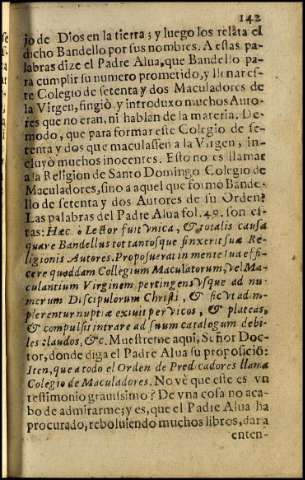 142
jo de Dios en la tierra; y luego los relata el
dicho Bandello por sus nombres. A estas pa-
labras dize el Padre Alua, que Bandello pa-
ra cumplir su numero prometido, y llenar es-
te Colegio de setenta y dos Maculadores de
la Virgen, fingiò, y introduxo muchos Auto-
res que no eran, ni hablan de la materia. De
modo, que para formar este Colegio de se-
tenta y dos que maculassen a la Virgen, in-
cluyò muchos inocentes. Esto no es llamar
a la Religion de Santo Domingo Colegio de
Maculadores, sino a aquel que formò Bande-
llo de setenta y dos Autores de su Orden?
Las palabras del Padre Alua fol. 49. son es-
tas: Hæc, ò Lector fuit vnica, & totalis causa
quare Bandellus tot tantosque finxerit suæ Re-
ligionis Autores. Proposuerat in mente sua effi-
cere quoddam Collegium Maculatorum, vel Ma-
culantium Virginem pertingens vsque ad nu-
merum Discipulorum Christi, & sicut ad im-
plerentur nuptiæ exiuit per vicos, & plateas,
& compulit intrare ad suum catalogum debi-
les claudos, &c. Muestreme aqui, Señor Doc-
tor, donde diga el Padre Alua su proposiciõ:
Iten, que a todo el Orden de Predicadores llama
Colegio de Maculadores. No vè que este es vn
testimonio grauissimo? De vna cosa no aca-
bo de admirarme; y es, que el Padre Alua ha
procurado, reboluiendo muchos libros, dar a
enten-